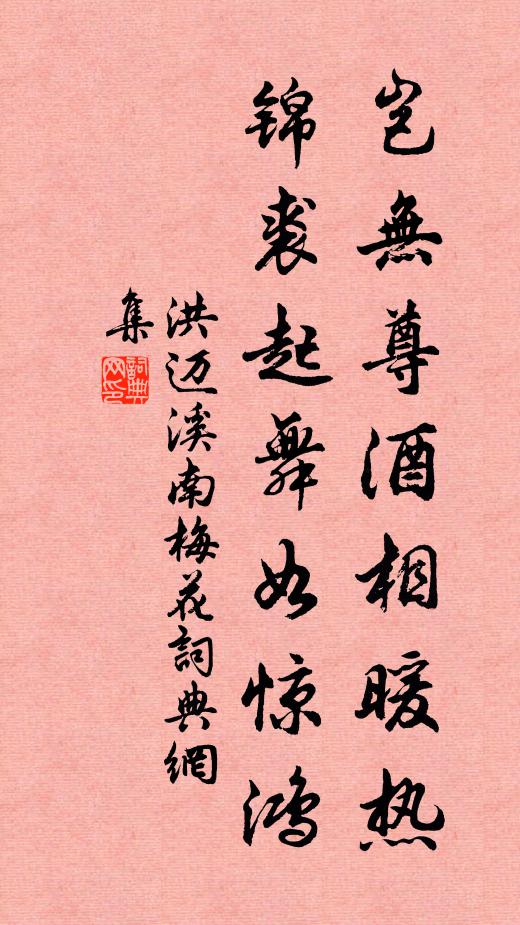 岂無尊酒相暖热
锦裘起舞如惊鸿
洪迈溪南梅花詞典網
集
詞典
网印